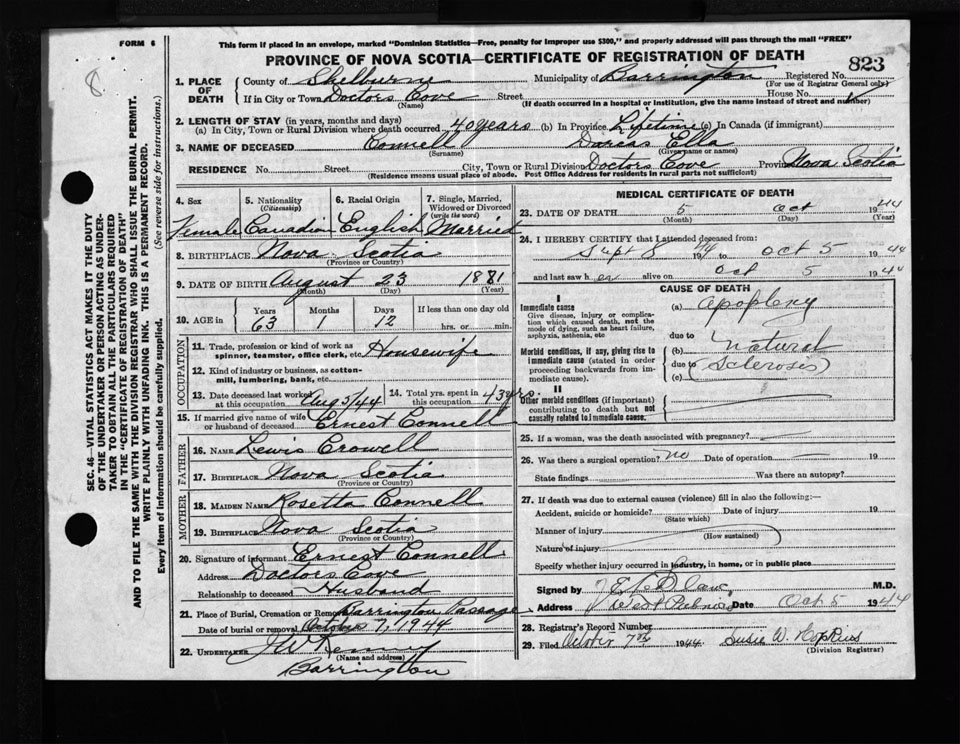 FORM 6
This form if placed in an envelope, marked "Dominion Statistics—Free, penalty for improper use $300," and properly addressed will pass through the mail "FREE"
PROVINCE OF NOVA SCOTIA—CERTIFICATE OF REGISTRATION OF DEATH
8
823
1. PLACE OF DEATH County of Shelburne Municipality of Barrington Registered No.
(For use of Registrar General only)
If in City or Town Doctors Cove Street House No.
(Name) (If death occurred in a hospital or institution, give the name instead of street and number)
2. LENGTH OF STAY (in years, months and days)
(a) In City, Town or Rural Division where death occurred 40 years (b) In Province Lifetime (c) In Canada (if immigrant)
3. NAME OF DECEASED Connell Darcas Ella
(Surname) (Given name or names)
RESIDENCE No. Street City, Town or Rural Division Doctors Cove Province Nova Scotia
(Residence means usual place of abode. Post Office Address for residents in rural parts not sufficient)
4. Sex 5. Nationality (Citizenship) 6. Racial Origin 7. Single, Married, Widowed or Divorced (write the word)
Female Canadian English Married
8. BIRTHPLACE Nova Scotia
(Province or Country)
9. DATE OF BIRTH August 23 1881
(Month) (Day) (Year)
10. AGE in Years Months Days If less than one day old
63 1 12 hrs. or min.
OCCUPATION
11. Trade, profession or kind of work as spinner, teamster, office clerk, etc. Housewife
12. Kind of industry or business, as cotton-mill, lumbering, bank, etc.
13. Date deceased last worked at this occupation Aug 5/44 14. Total yrs. spent in this occupation 43 yrs.
15. If married give name of wife or husband of deceased Ernest Connell
FATHER
16. NAME Lewis Crowell
17. BIRTHPLACE Nova Scotia
(Province or Country)
MOTHER
18. MAIDEN NAME Rosetta Connell
19. BIRTHPLACE Nova Scotia
(Province or Country)
20. Signature of informant Ernest Connell
Address Doctors Cove
Relationship to deceased Husband
21. Place of Burial, Cremation or Removal Barrington Passage
Date of burial or removal October 7, 1944
22. UNDERTAKER J W Kenney
(Name and address)
Barrington
MEDICAL CERTIFICATE OF DEATH
23. DATE OF DEATH 5 Oct 1944
(Month) (Day) (Year)
24. I HEREBY CERTIFY that I attended deceased from:
Sept 8 1944 to Oct 5 1944
and last saw her alive on Oct 5 1944
CAUSE OF DEATH
I
Immediate cause (a) apoplexy
Give disease, injury or complication which caused death, not the mode of dying, such as heart failure, asphyxia, asthenia, etc
due to
Morbid conditions, if any, giving rise to immediate cause (stated in order proceeding backwards from immediate cause).
(b) natural
due to (Scleroses)
(c)
II
Other morbid conditions (if important) contributing to death but not causally related to immediate cause.
25. If a woman, was the death associated with pregnancy?
26. Was there a surgical operation? no Date of operation
State findings Was there an autopsy?
27. If death was due to external causes (violence) fill in also the following:—
Accident, suicide or homicide? Date of injury 19
(State which)
Manner of injury
(How sustained)
Nature of injury
Specify whether injury occurred in industry, in home, or in public place
Signed by M.D.
Address West Pubnico Date Oct 5 1944
28. Registrar's Record Number
29. Filed October 7th 1944 Susie W. Hopkins
(Division Registrar)
SEC. 46—VITAL STATISTICS ACT MAKES IT THE DUTY
OF THE UNDERTAKER OR PERSON ACTING AS UNDERTAKER TO OBTAIN ALL THE PARTICULARS REQUIRED
IN THE "CERTIFICATE OF REGISTRATION OF DEATH"
AND TO FILE THE SAME WITH THE DIVISION REGISTRAR WHO SHALL ISSUE THE BURIAL PERMIT.
WRITE PLAINLY WITH UNFADING INK. THIS IS A PERMANENT RECORD.
Every item of information should be carefully supplied. (See reverse side for instructions.)